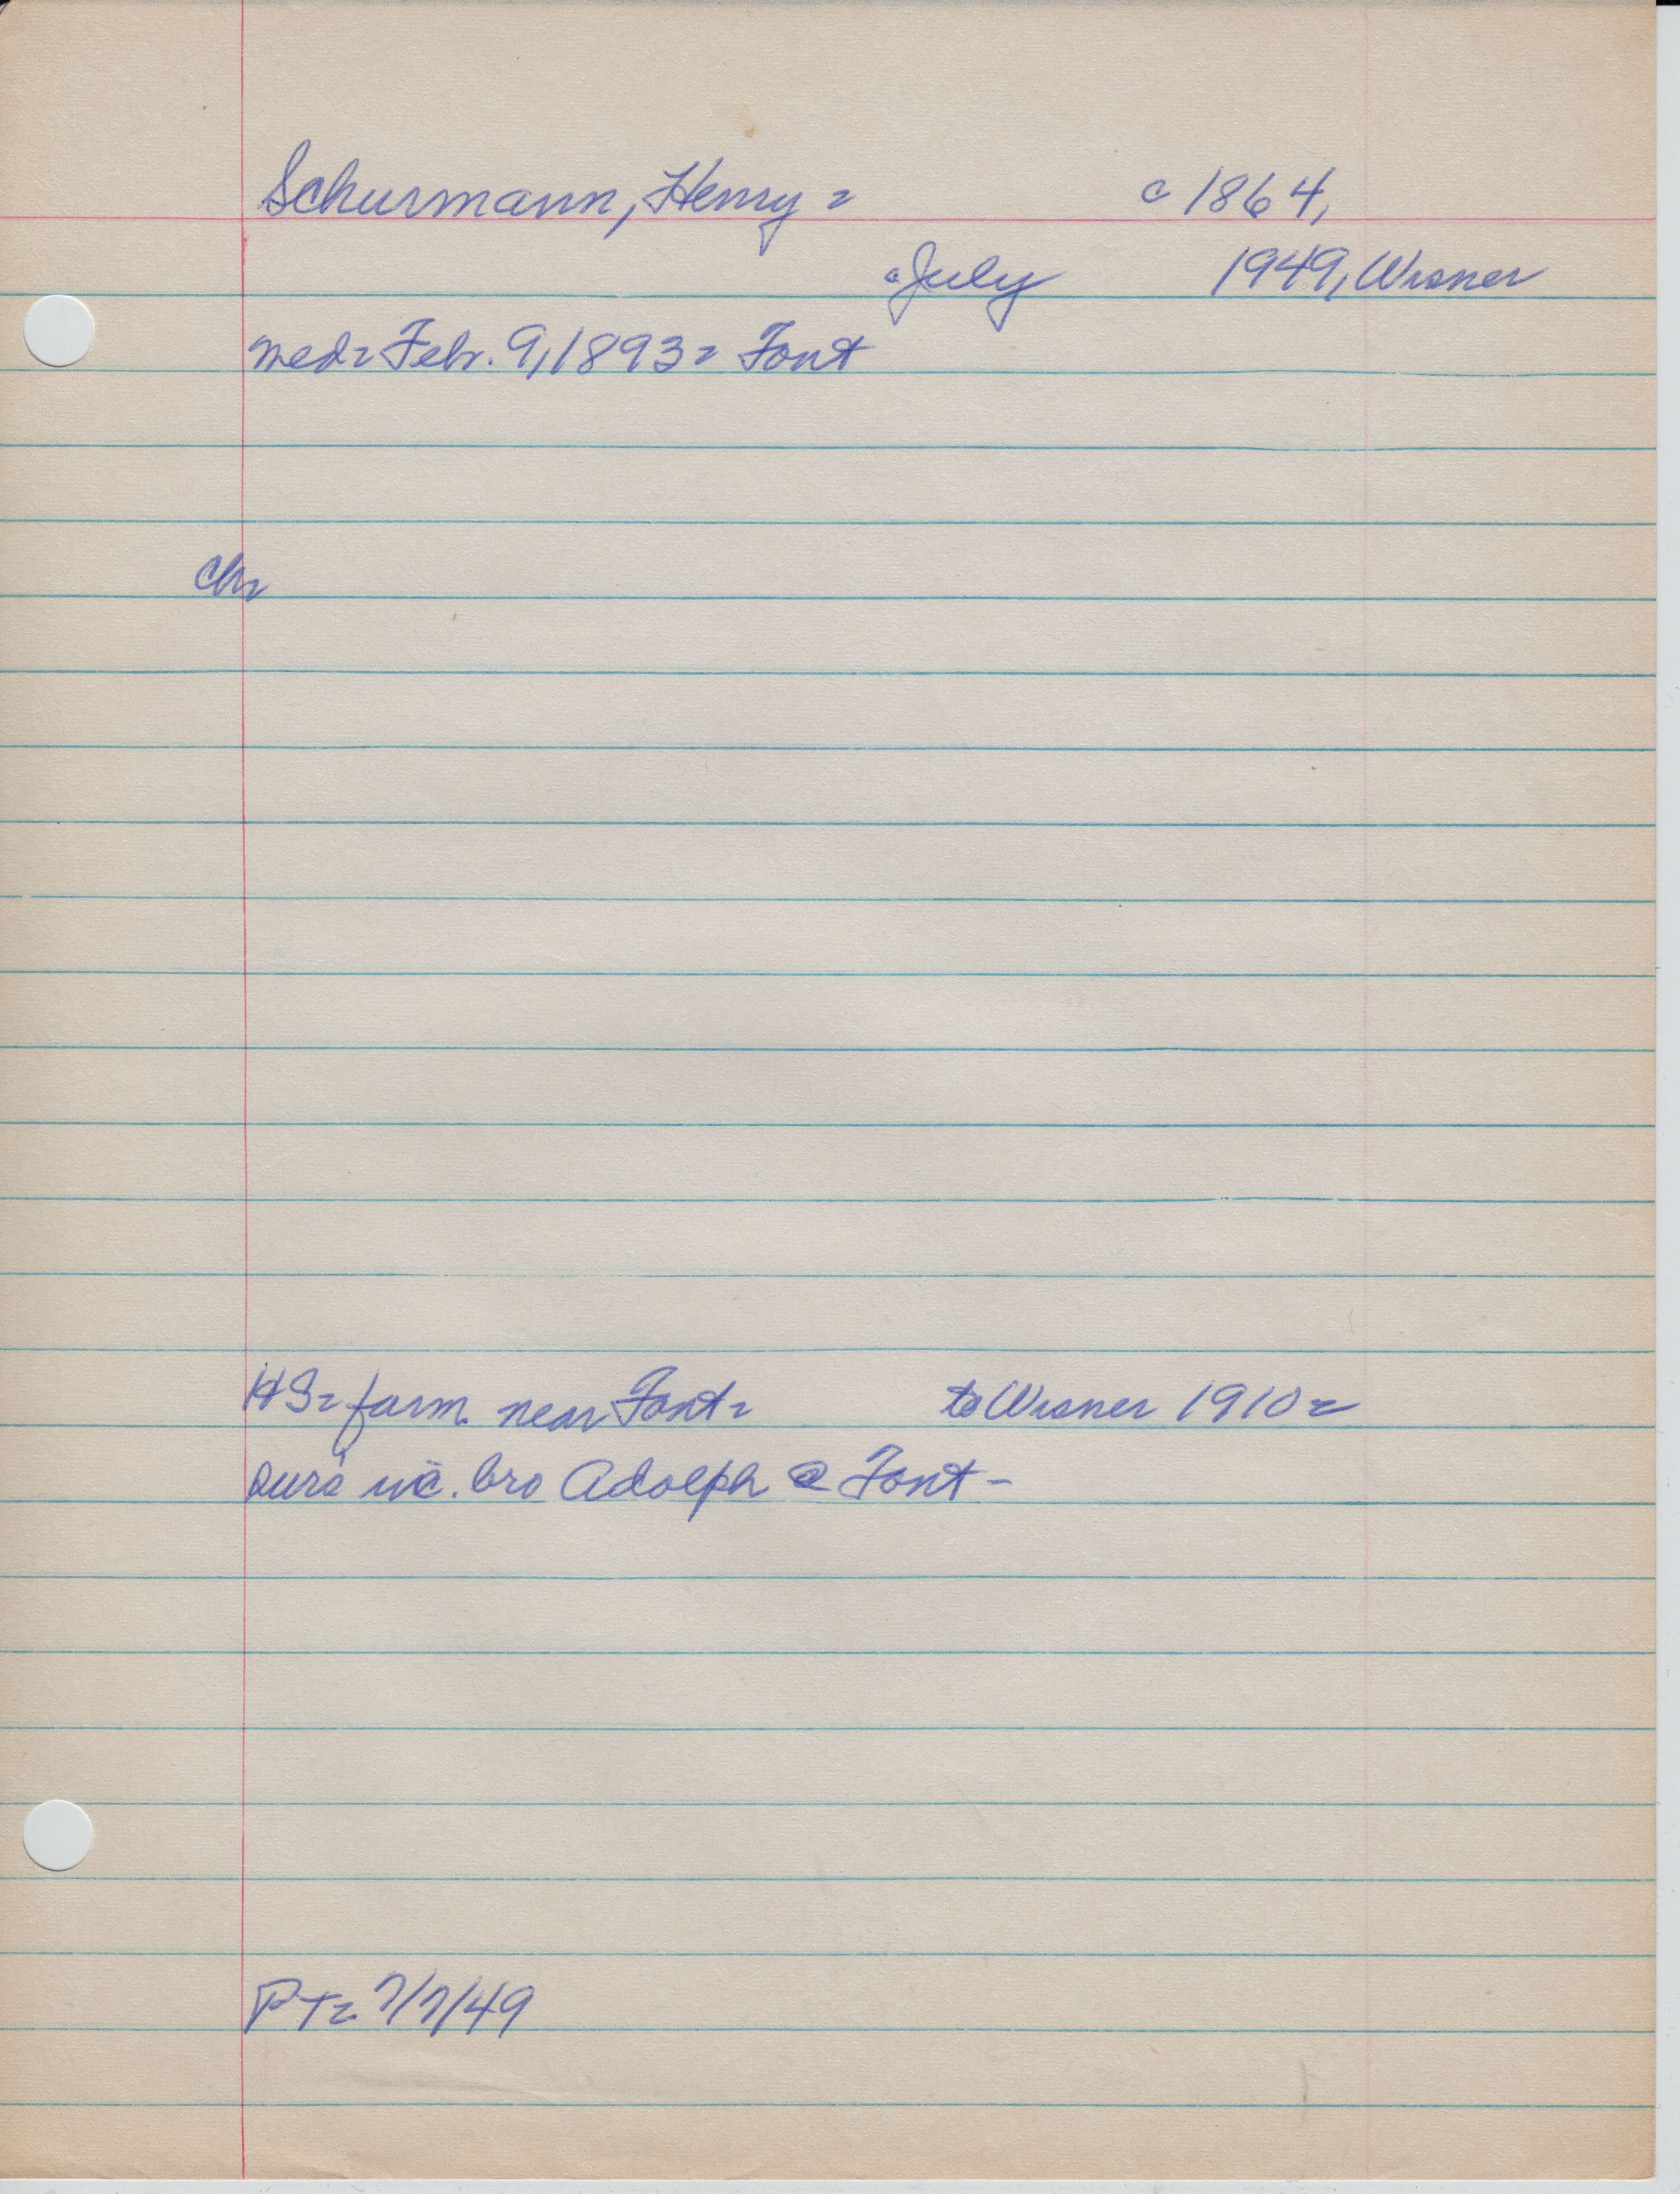 Schurmann, Henry = c 1864,
c July 1949, Wisner
med = Febr. 9, 1893 = Font
Ch =
HS = farm near Font = to Wisner 1910 =
surs inc. bro Adolph @ Font -
PT = 7/7/49